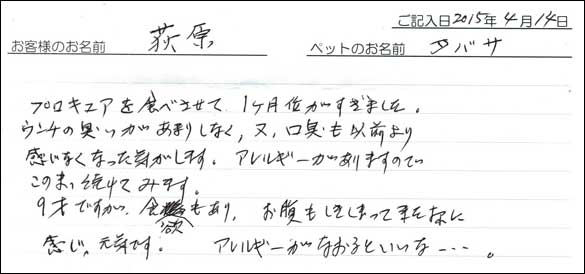 ご記入日2015年4月14日
お客様のお名前 荻原 ペットのお名前 タバサ
プロキュアを食べさせて 1ヶ月位がすぎました。
ウンチの臭いがあまりしなく、又、口臭も以前より
感じなくなった気がします。アレルギーがありますので
このまま続けてみます。
9才ですが、食欲もあり、お腹もしまって来た
感じ。元気です。 アレルギーがなおるといいな---。